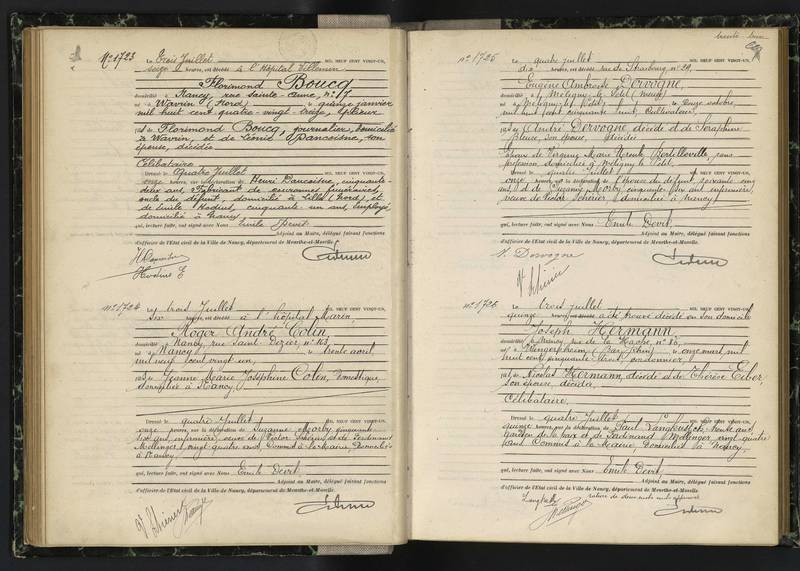 N° 1723
Le trois Juillet MIL NEUF CENT VINGT-UN,
seize heures, est décédé à l'Hôpital Villemin
Florimond Boucq
domicilié à Nancy, rue Sainte-Anne, N° 17
né à Wavrin (Nord) le quinze janvier
mil huit cent quatre-vingt-treize,
fils de Florimond Boucq, journalier, domicilié
à Wavrin, et de Léonie Dancoisne, son
épouse, décédée
Célibataire
Dressé le quatre Juillet MIL NEUF CENT VINGT-UN,
onze heures, sur la déclaration de Henri Dancoisne, cinquante
deux ans, Fabricant de couronnes funéraires,
oncle du défunt, domicilié à Lille (Nord), et
de Emile Hodius, cinquante-un ans, Employé
domicilié à Nancy
qui, lecture faite, ont signé avec Nous Emile Devit
Adjoint au Maire, délégué faisant fonctions
d'officier de l'Etat civil de la Ville de Nancy, département de Meurthe-et-Moselle.
N° 1724
Le trois Juillet MIL NEUF CENT VINGT-UN,
six heures, est décédé à l'hôpital Marin,
Roger André Colin,
domicilié à Nancy, rue Saint-Dizier, n° 163,
né à Nancy le trente avril
mil neuf cent vingt un,
fils de Jeanne Marie Joséphine Colin, Domestique,
domiciliée à Nancy,
Dressé le quatre Juillet MIL NEUF CENT VINGT-UN,
onze heures, sur la déclaration de Suzanne Morby, cinquante
six ans, infirmière, veuve de Victor Schérier et de Ferdinand
Mollinger, vingt quatre ans, Commis à la Mairie, Domiciliés
à Nancy,
qui, lecture faite, ont signé avec Nous Emile Devit,
Adjoint au Maire, délégué faisant fonctions
d'officier de l'Etat civil de la Ville de Nancy, département de Meurthe-et-Moselle.
N° 1725
Le quatre juillet MIL NEUF CENT VINGT-UN,
dix heures, est décédé rue de Strasbourg n° 29,
Eugène Ambroise Dervogne,
domicilié à Méligny le Petit (Meuse)
né à Méligny le Petit le onze octobre
mil huit cent cinquante huit, Cultivateur,
fils de André Dervogne, décédé et de Séraphine
son épouse, décédée
Epoux de Virginie Marie Bertilleville, sans
profession, domiciliée à Méligny le Petit.
Dressé le quatre juillet MIL NEUF CENT VINGT-UN,
onze heures, sur la déclaration de du défunt, soixante
ans et de Suzanne Morby, cinquante six ans, infirmière,
veuve de Victor Schérier, domiciliée à Nancy
qui, lecture faite, ont signé avec Nous Emile Devit,
Adjoint au Maire, délégué faisant fonctions
d'officier de l'Etat civil de la Ville de Nancy, département de Meurthe-et-Moselle.
N° 1726
Le trois juillet MIL NEUF CENT VINGT-UN,
quinze heures, a été trouvé décédé en son domicile
Joseph Hermann,
domicilié à Nancy, rue de la Hache, n° 85,
né à (Bas Rhin) le onze mars, mil
huit cent cinquante trois, cordonnier,
fils de Nicolas Hermann, décédé et de Thérèse Eiber,
son épouse, décédée,
Célibataire,
Dressé le quatre Juillet MIL NEUF CENT VINGT-UN,
quinze heures, sur la déclaration de Paul trente ans,
Gardien de la paix et de Ferdinand Mollinger, vingt-quatre
ans, Commis à la Mairie, Domiciliés à Nancy,
qui, lecture faite, ont signé avec Nous Emile Devit,
Adjoint au Maire, délégué faisant fonctions
d'officier de l'Etat civil de la Ville de Nancy, département de Meurthe-et-Moselle